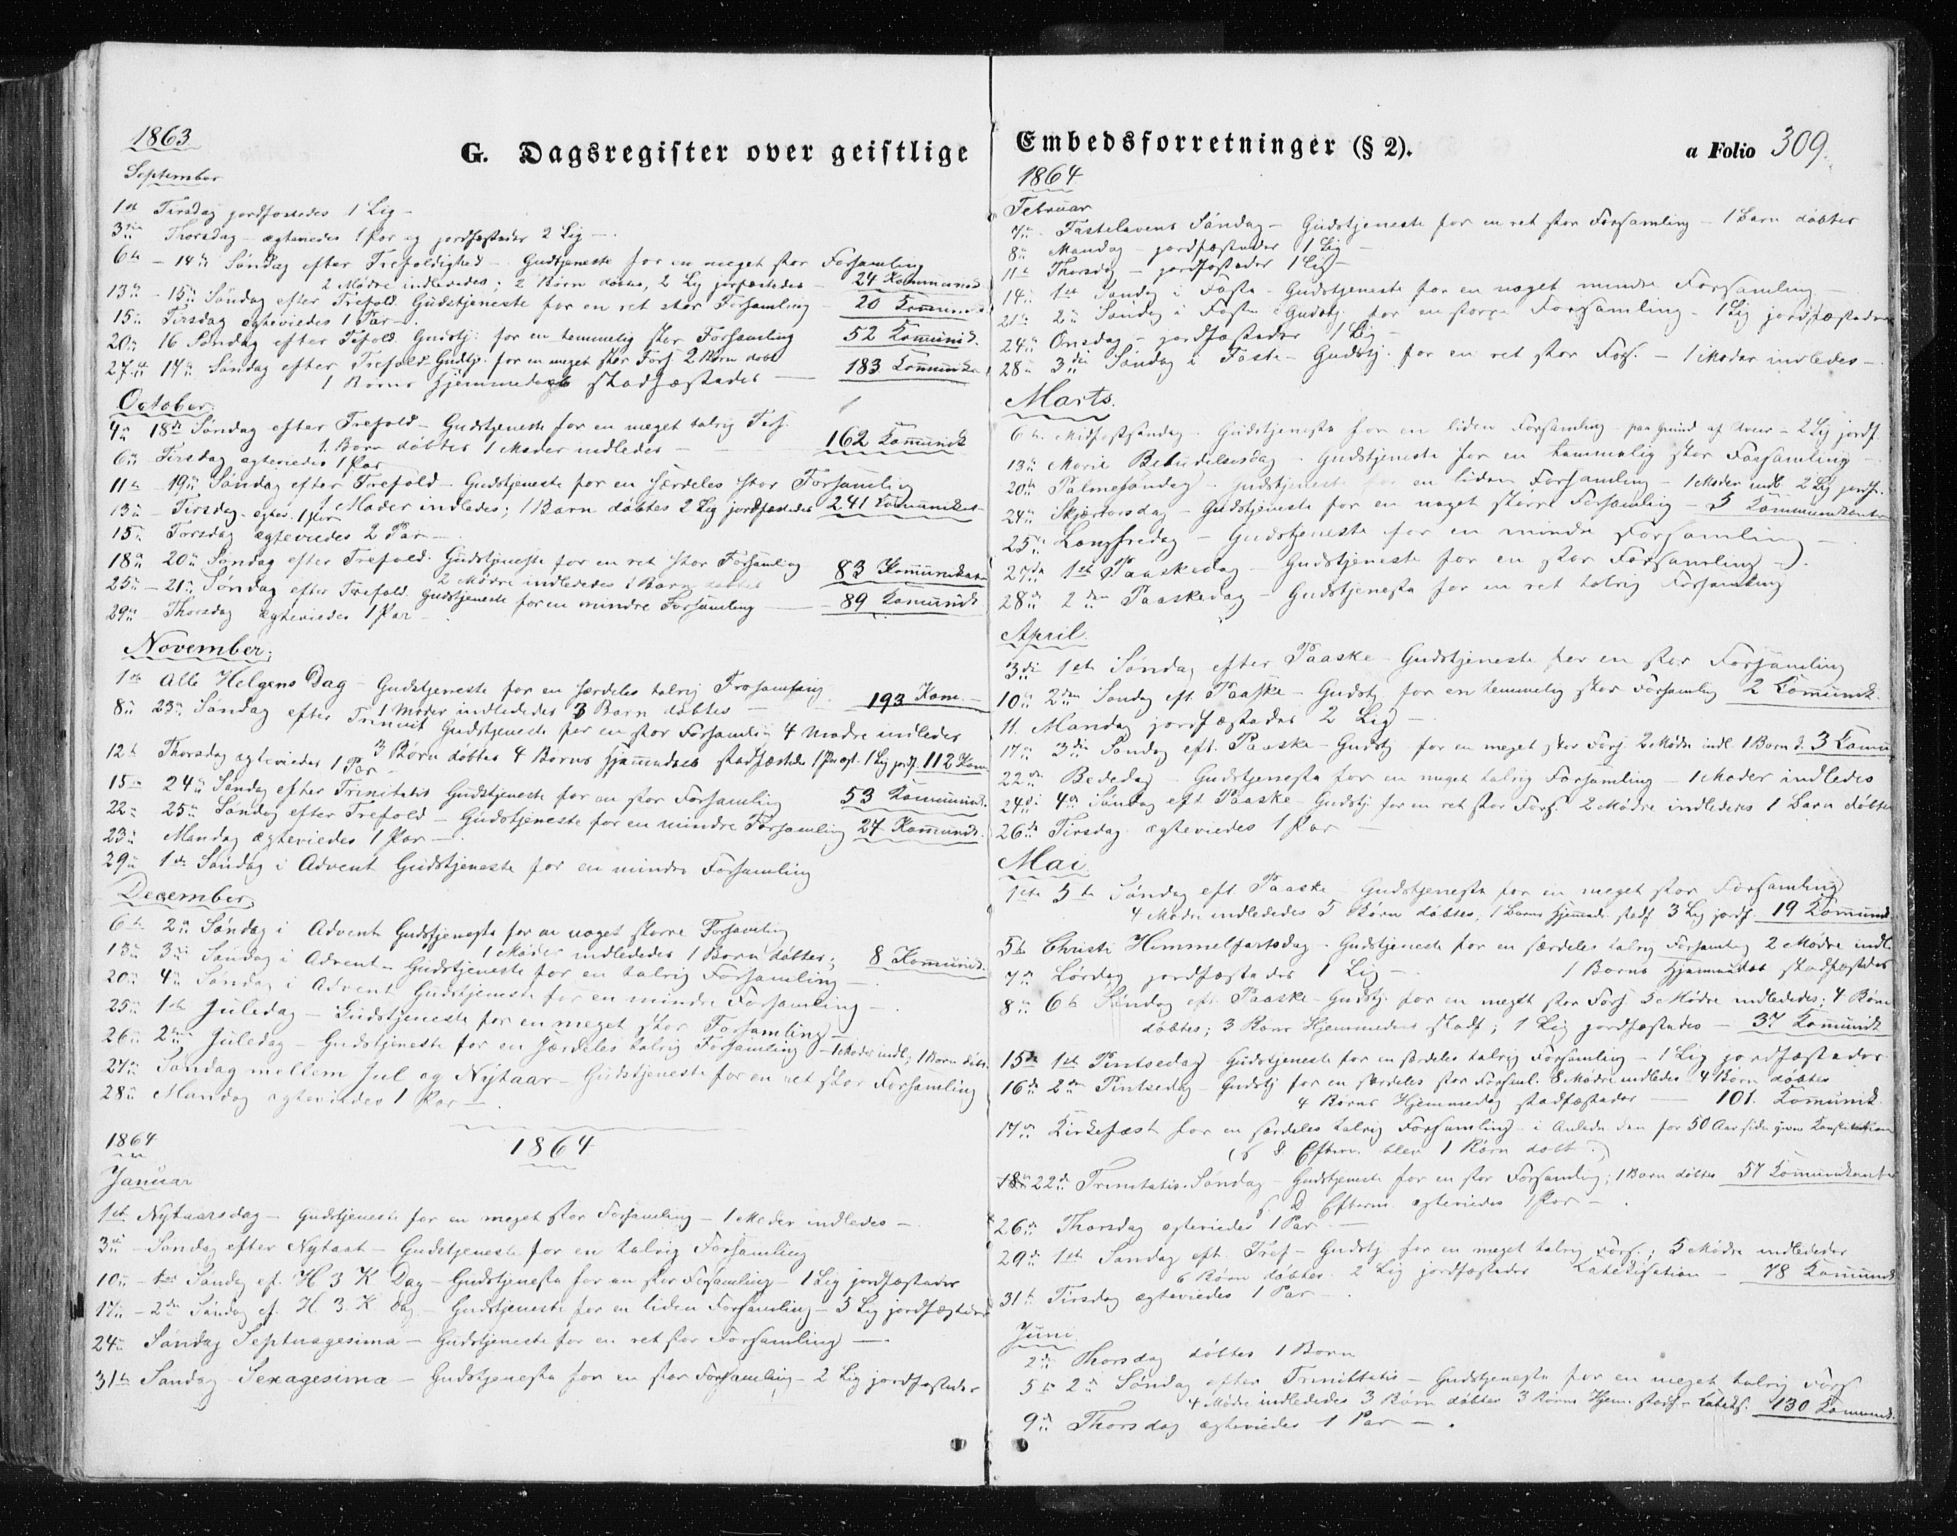 1863
G. Dagsregister over geistlige
September
1ste Tirsdag jordfæstedes 1 Lig -
3die Thorsdag - ægteviedes 1 Par og jordfæstedes 2 Lig -
6te - 14de Søndag efter Trefoldighed - Gudstjeneste for en meget stor Forsamling
2 Mødre indlededes; 2 Børn døbtes, 2 Lig jordfæstedes - 24 Kommunik
13de - 15de Søndag efter Trefold. Gudstjeneste for en ret stor Forsamling 20 Kommunik
15de Tirsdag ægteviedes 1 Par -
20de 16 Søndag efter Trefold. Gudstj: for en temmelig stor Forsamling 52 Komunik.
27de 17de Søndag efter Trefold - Gudstj. for en meget stor Fors. 2 Børn døbt
1 Børns Hjemmedaab stadfæstedes - 183 Komunika
October
4de 18de Søndag efter Trefold - Gudstjeneste for en meget talrig Fors.
1 Barn døbtes 1 Moder indledes - 162 Komunik
6te Tirsdag ægteviedes 1 Par
11te 19de Søndag efter Trefold - Gudstjeneste for en særdeles stor Forsamling
1 Moder indledes; 1 Barn døbtes 2 Lig jordfæstedes 241 Komunikat
13de - Tirsdag - egtev. 1 Par
15de Torsdag ægteviedes 2 Par -
18de 20de Søndag efter Trefold. Gudstjeneste for en ret stor Forsamling
2 Mødre indlededes 1 Barn døbtes 83 Komunikatn
25de - 21de Søndag efter Trefold. Gudstjeneste for en mindre Forsamling - 89 Komunik
29de Thorsdag ægteviedes 1 Par -
November
1ste Alle Helgens Dag - Gudstjeneste for en særdeles talrig Forsamling
1 Moder indlededes 3 Barn døbtes - 193 Kom. -
8de 23de Søndag efter Trinit Gudstjeneste for en stor Forsamlin 4 Mødre indledes
3 Børn døbtes 4 Børns Hjemmedaab stadfæstedes 1 Lig jordf. 112 Kom
12te Thorsdag ægteviedes 1 Par
15de 24de Søndag efter Trinitatis Gudstjeneste for en stor Forsamling 53 Komunik.
22de 25de Søndag efter Trefold - Gudstjeneste for en mindre Forsamling 27 Komunik.
23de Mandag ægteviedes 1 Par -
29de 1ste Søndag i Advent Gudstjeneste for en mindre Forsamling
December
6te 2den Søndag i Advent Gudstjeneste for en noget større Forsamling
1 Moder indlededes 1 Barn døbtes; 8 Komunik.
13de 3die Søndag i Advent - Gudstjeneste for en talrig Forsamling -
20de 4de Søndag i Advent Gudstjeneste for en mindre Forsamling -
25de 1ste Juledag - Gudstjeneste for en meget stor Forsamling -
26de 2den Juledag - Gudstjeneste for en særdeles talrig Forsamling - 1 Moder indl; 1 Barn døbt.
27de Søndag mellem Jul og Nytaar - Gudstjeneste for en ret stor Forsamling
28de Mandag ægteviedes 1 Par -
1864 1864
Januar
1ste Nytaarsdag - Gudstjeneste for en meget stor Forsamling - 1 Moder indledes -
3die - Søndag efter Nytaar - Gudstjeneste for en talrig Forsamling
10de - 1ste Søndag ef. H 3 K Dag - Gudstjeneste for en stor Forsamling - 1 Lig jordfæstedes
17de - 2den Søndag ef. H. 3. K Dag - Gudstjeneste for en liden Forsamling - 3 Lig jordfæstedes
24de Søndag Septuagesima - Gudstjeneste for en ret stor Forsamling -
31te Søndag - Sexagesima - Gudstjeneste for en stor Forsamling - 2 Lig jordfæstedes
Embedsforretninger (§ 2). a Folio 309.
1864
Februar
7de Fastelavens Søndag - Gudstjeneste for en ret stor Forsamling - 1 Barn døbtes
8de Mandag - jordfæstedes 1 Lig -
11te Thorsdag - jordfæstedes 1 Lig -
14de 1ste Søndag i Faste - Gudstjeneste for en noget mindre Forsamling -
21de 2den Søndag i Faste Gudstj. for en større Forsamling - 1 Lig jordfæstedes
24de Onsdag - jordfæstedes 1 Lig -
28de 3die Søndag i Faste - Gudstj. for en ret stor Fors. - 1 Moder indledes -
Marts.
6te Midfastsøndag Gudstjeneste for en liden Forsamling - paa Grund af - 2 Lig jordf
13de Mariæ Bebudelsesdag - Gudstjeneste for en temmelig stor Forsamling -
20de Palmesøndag - Gudstjeneste for en liden Forsamling - 1 Moder indl. 2 Lig jordf.
24de Skjærtorsdag - Gudstjeneste for en noget større Forsamling - 5 Kommunikanter
25de Langfredag - Gudstjeneste for en mindre Forsamling -
27de 1ste Paaskedag - Gudstjeneste for en stor Forsamling -
28de 2den Paaskedag - Gudstjeneste for en ret talrig Forsamling
April
3die 1ste Søndag efter Paaske - Gudstjeneste for en stor Forsamling
10de 2den Søndag eft Paaske - Gudstj for en temmelig stor Forsamling 2 Komunik.
11. Mandag jordfæstedes 2 Lig -
17de 3die Søndag eft. Paaske - Gudstj for en meget stor Fors 2 Mødre indl. 1 Barn d. 3 Komu
22de Bededag - Gudstjeneste for en meget talrig Forsamling - 1 Moder indledes
24de 4de Søndag eft Paaske - Gudstj for en ret stor Fors. 2 Mødre indlededes 1 Barn døbtes
26de Tirsdag ægteviedes 1 Par -
Mai
1ste 5te Søndag eft Paaske - Gudstjeneste for en meget stor Forsamling
4 Mødre indlededes 5 Børn døbtes, 1 Barns Hjemd. stadf 3 Lig jordf 19 Komunik.
5te Christi Himmelfartsdag - Gudstjeneste for en særdeles talrig Forsamling 2 Mødre indl.
1 Barns Hjemmedaab stadfæstedes
7de Lørdag jordfæstedes 1 Lig -
8de 6te Søndag eft. Paaske - Gudstj. for en meget stor Fors 5 Mødre indlededes; 4 Børn
døbtes; 3 Børns Hjemmedaab stadf; 1 Lig jordfæstedes - 37 Komunik
15de 1ste Pintsedag Gudstjeneste for en særdeles talrig Forsamling - 1 Lig jordfæstedes
16de 2den Pintsedag - Gudstj for en særdeles stor Forsaml. 8 Mødre indledes 4 Børn døbtes
4 Børns Hjemmedaab stadfæstedes - 101. Komunik.
17de Kirkefæst for en særdeles talrig Forsamling i Anledn. den for 50 Aar siden givne Konstitution
(s D Efterm. blev 1 Barn døbt.)
18de 22de Trinitatis-Søndag - Gudstjeneste for en stor Forsamling; 1 Barn døbtes 57 Komunikanter
s. D Efterm ægteviedes 1 Par -
26de Thorsdag ægteviedes 1 Par -
29de 1ste Søndag eft. Tref - Gudstj. for en meget talrig Fors.; 5 Mødre indlededes
6 Børn døbtes. 2 Lig jordfæstedes Katekisation - 78 Komunik
31te Tirsdag ægteviedes 1 Par -
Juni
2den Thorsdag døbtes 1 Barn
5te 2den Søndag efter Trinitatis - Gudstjeneste for en meget talrig Fors
4 Mødre indlededes 3 Børn døbtes 3 Børns Hjem. stadf - Katekis. 130 Komunik.
9de Thorsdag ægteviedes 1 Par - .